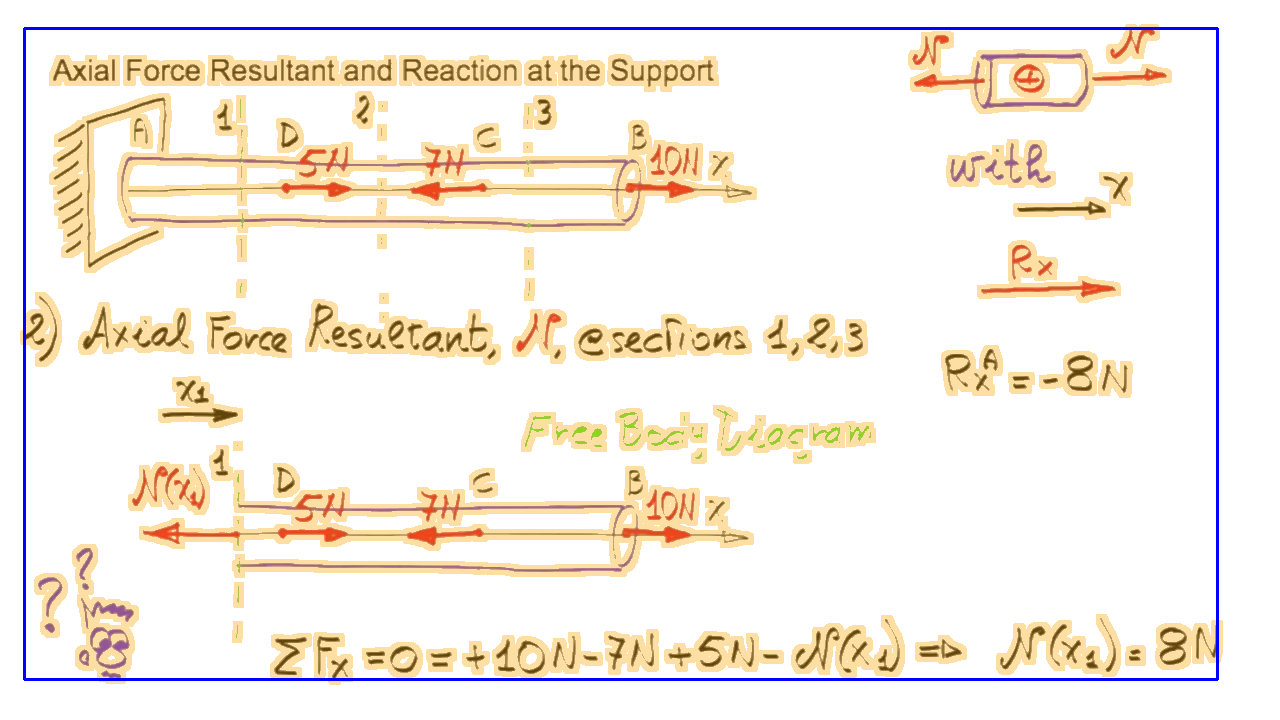 Axial Force Resultant and Reaction at the Support
N N
+
1 2 3
A D C B
5N 7N 10N x
with
x
Rx
2) Axial Force Resultant, N, @sections 1,2,3
RxA = -8N
x1
Free Body Diagram
1 D C B
N(x1) 5N 7N 10N x
? ?
ΣFx = 0 = +10N-7N+5N-N(x1) => N(x1) = 8N